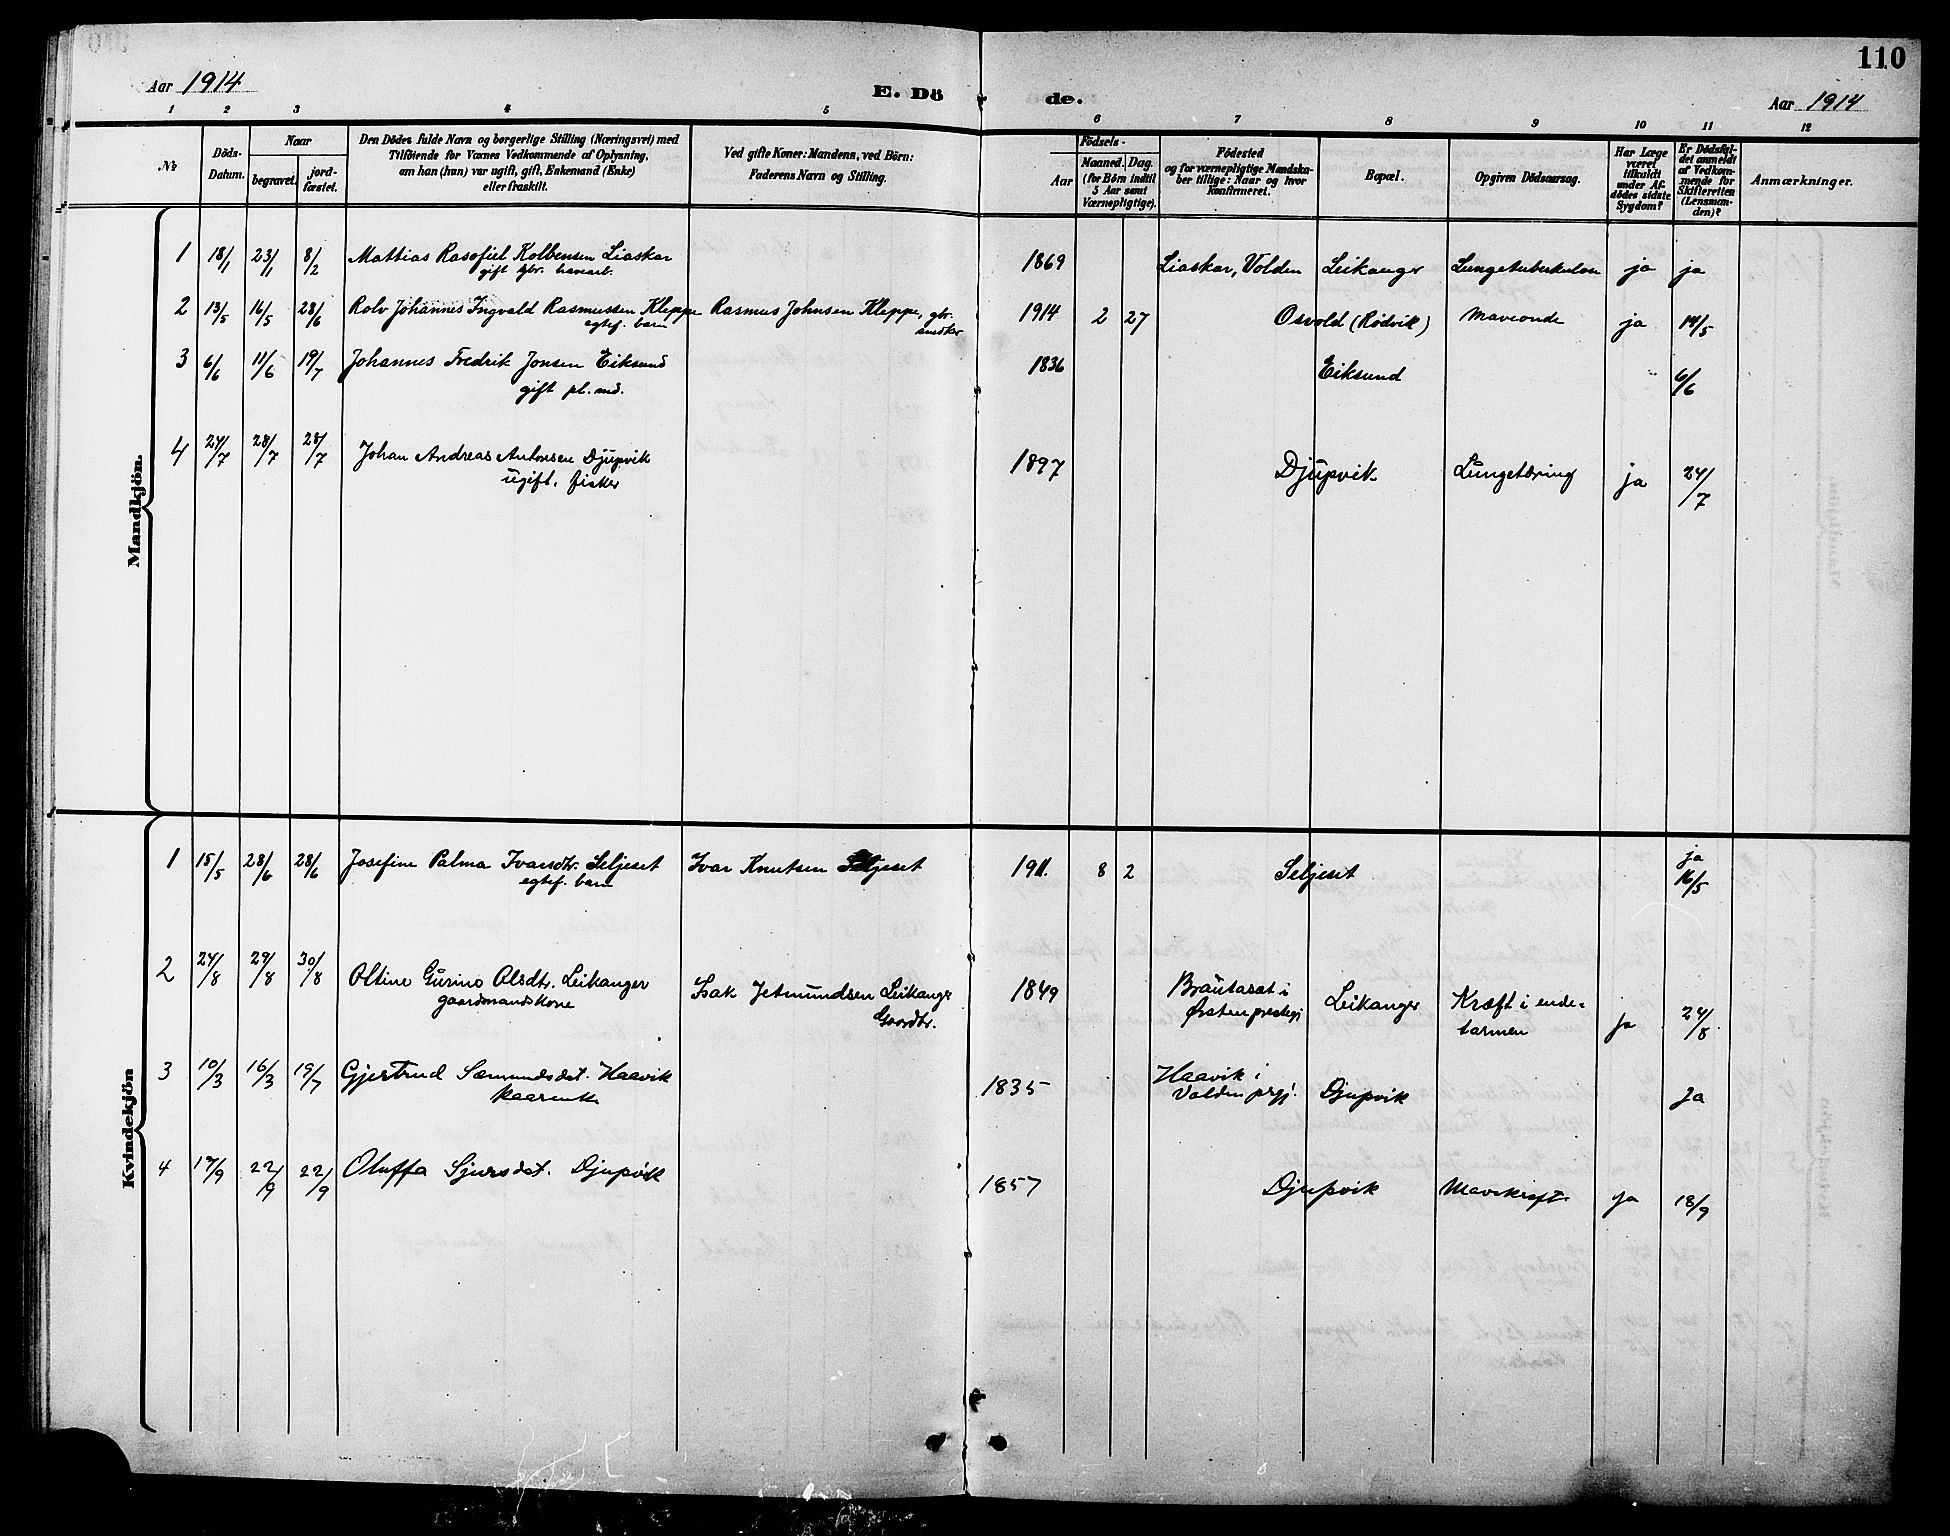 110
Aar 1914
E. Dö de.
Aar 1914
1 2 3 4 5 6 7 8 9 10 11 12
No
Döds-Datum.
Naar
begravet.
jord-fæstet.
Den Dödes fulde Navn og borgerlige Stilling (Næringsvei) med
Tilföiende for Voxnes Vedkommende af Oplysning,
om han (hun) var ugift, gift, Enkemand (Enke)
eller fraskilt.
Ved gifte Koner: Mandens, ved Börn:
Faderens Navn og Stilling.
Födsels-
Aar
Maaned.
Dag.
(for Börn indtil
5 Aar samt
Værnepligtige).
Födested
og for værnepligtige Mandska-
ber tillige: Naar og hvor
Konfirmeret.
Bopæl.
Opgiven Dödsaarsag.
Har Læge
været
tilkaldt
under Af-
dödes sidste
Sygdom?
Er Dödsfal-
det anmeldt
af Vedkom-
mende for
Skifteretten
(Lensman-
den)?
Anmærkninger.
Mandkjön.
1 18/1 23/1 8/2 Mattias Rasofiel Kolbensen Liaskar 1869 Liaskar, Volden Leikanger Lungetuberkulose ja ja
gift
2 13/5 16/5 28/6 Rolv Johannes Ingvald Rasmussen Kleppe Rasmus Johnsen Kleppe, gbr. 1914 2 27 Osvold (Rødvik) Maveonde ja 14/5
egtef. barn
3 6/6 11/6 19/7 Johannes Fredrik Jonsen Eiksund 1836 Eiksund 6/6
gift
4 24/7 28/7 28/7 Johan Andreas Antonsen Djupvik 1897 Djupvik Lungetæring ja 24/7
ugift. fisker
Kvindekjön
1 15/5 28/6 28/6 Josefine Palma Ivarsdtr. Seljeset Ivar Knutsen Seljeset 1911. 8 2 Seljeset ja 16/5
egtef. barn
2 24/8 29/8 30/8 Oltine Gurine Olsdtr. Leikanger Isak Jetmundsen Leikanger 1849 Brautaset i Leikanger Kræft i ende- ja 24/8
gaardmandskone Gaardbr. Ørsten prestegj tarmen
3 10/3 16/3 19/7 Gjertrud Sæmundsdat. Haavik 1835 Haavik i Djupvik Ja
Volden prgj.
4 17/9 22/9 22/9 Oluffa Sjursdat. Djupvik 1857 Djupvik Mavekræft ja 18/9